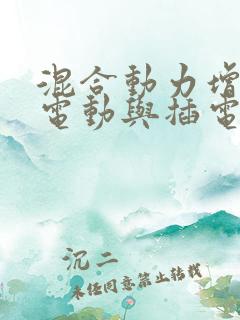 混合動力增
電動與插電
沉二
未任同意禁止轉載